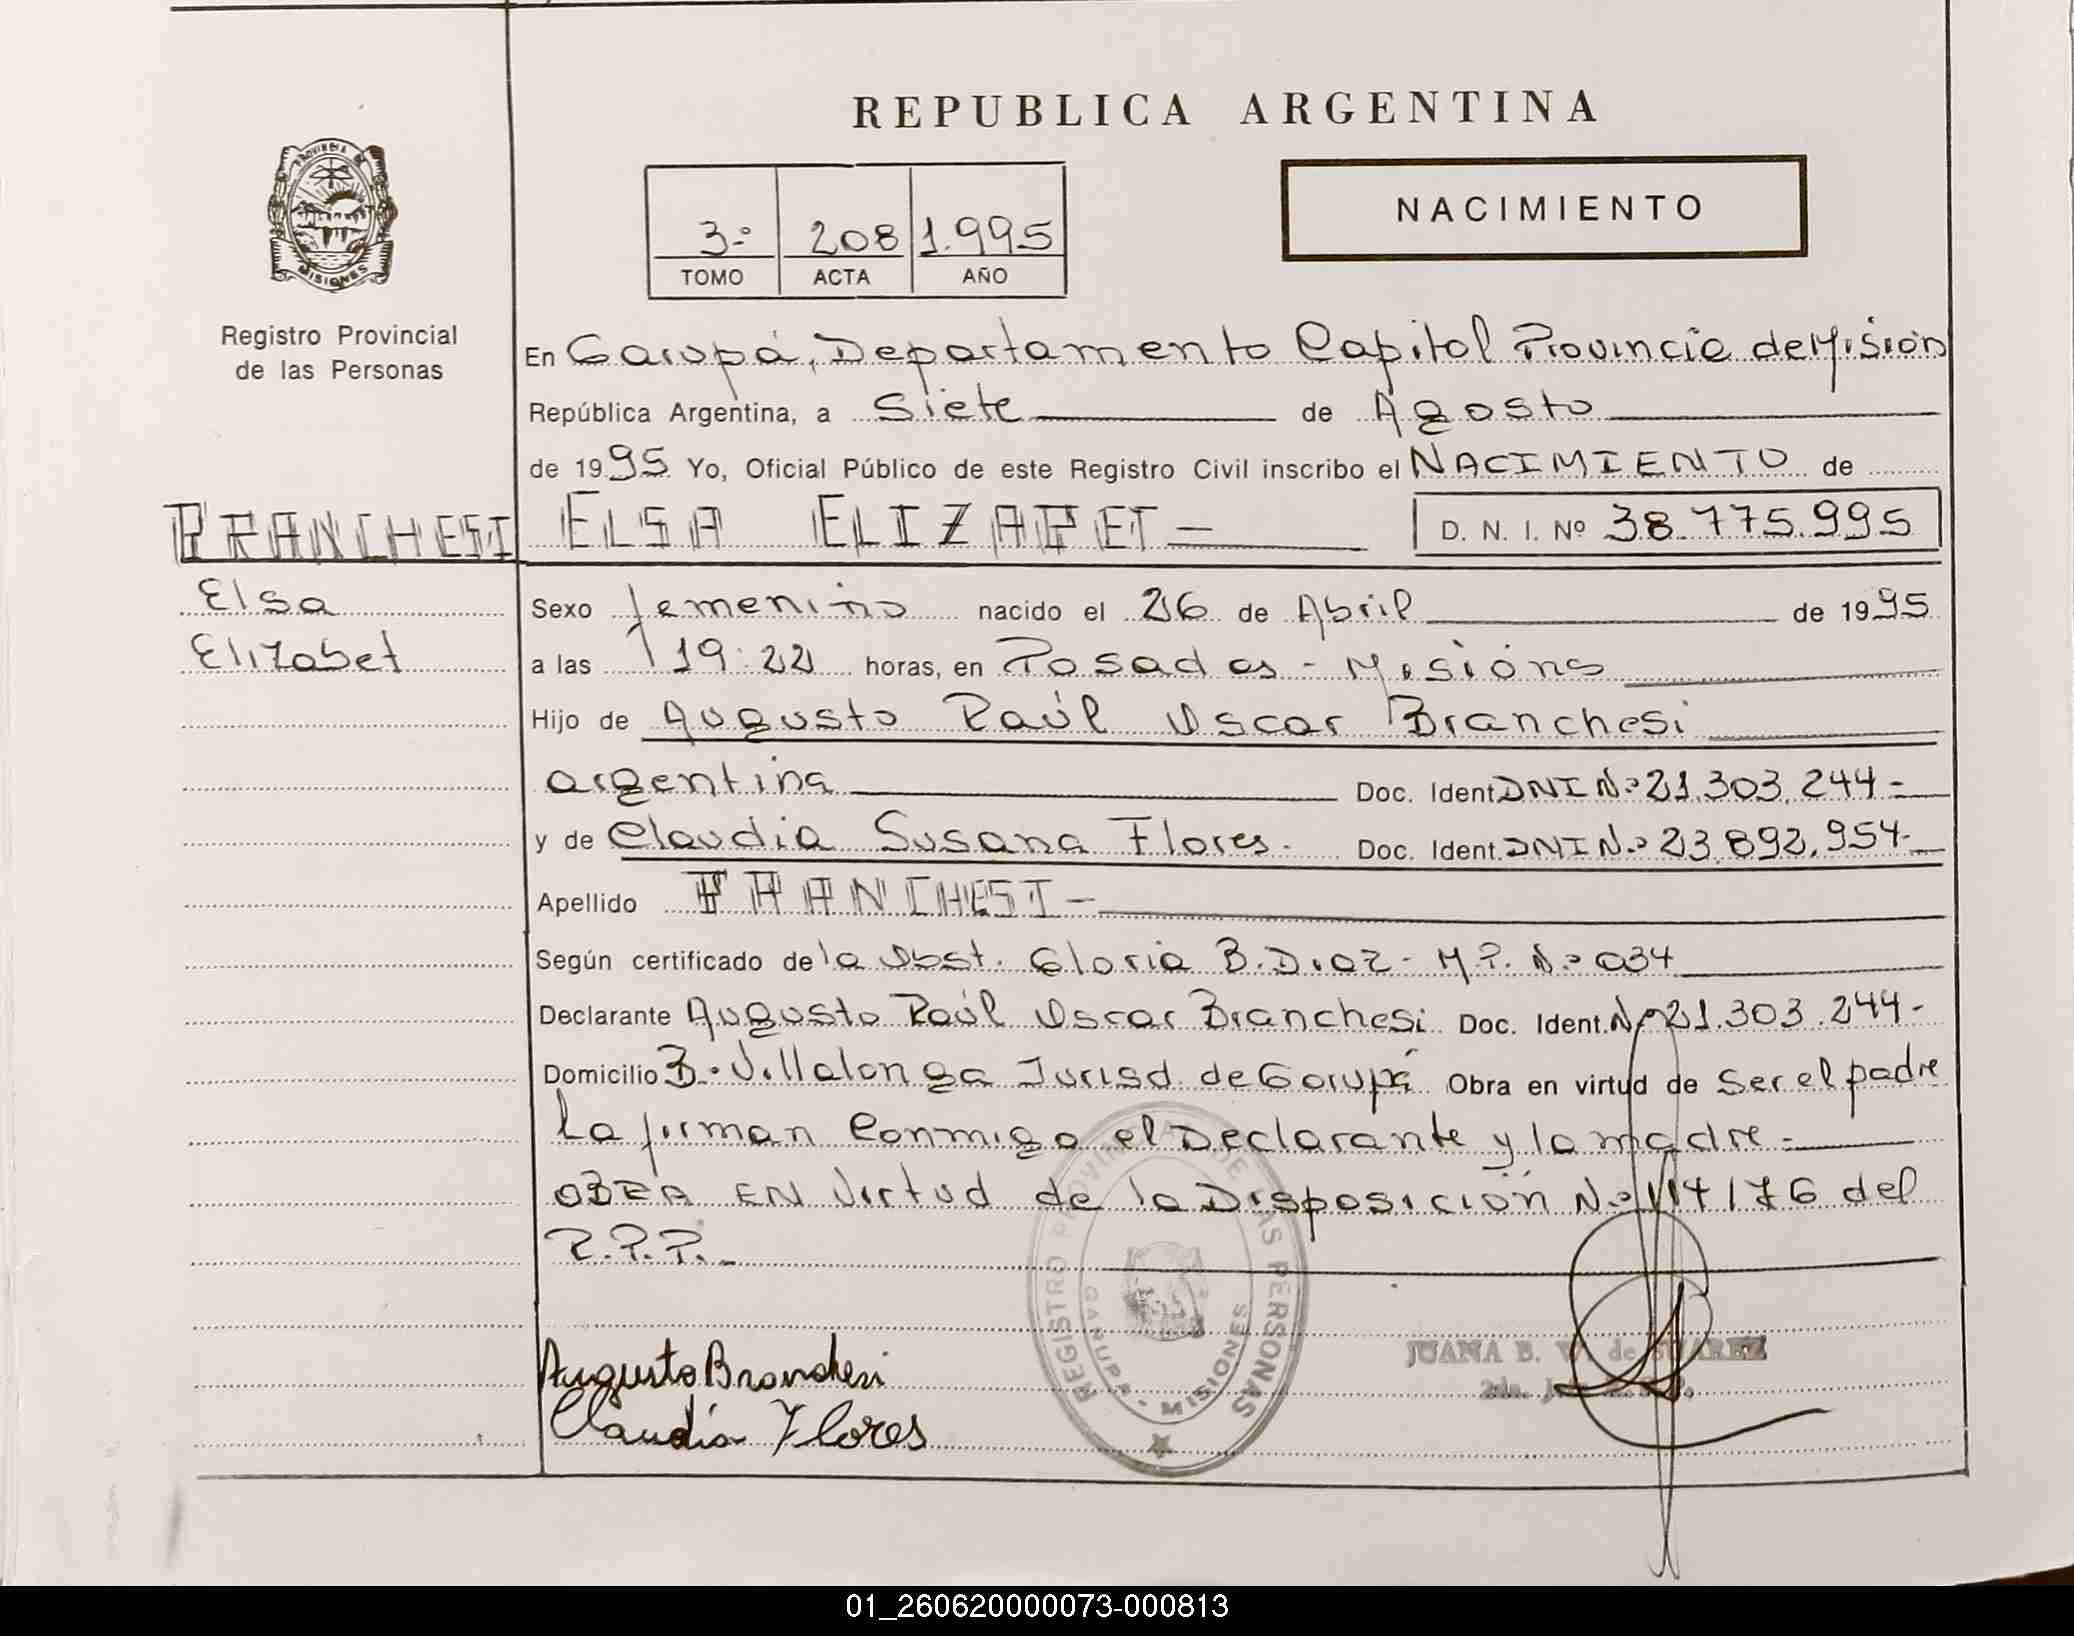 REPUBLICA ARGENTINA
PROVINCIA DE
MISIONES
Registro Provincial
de las Personas
3º 208 1.995
TOMO ACTA AÑO
NACIMIENTO
En Garupá, Departamento Capital Provincia de Misiones
República Argentina, a Siete de Agosto
de 1995 Yo, Oficial Público de este Registro Civil inscribo el NACIMIENTO de
BRANCHESI ELSA ELIZABET — D. N. I. Nº 38.775.995
Elsa
Elizabet
Sexo femenino nacido el 26 de Abril de 1995
a las 19:22 horas, en Posadas - Misiones
Hijo de Augusto Raúl Oscar Branchesi
argentina Doc. Ident. DNI Nº 21.303.244-
y de Claudia Susana Flores. Doc. Ident. DNI Nº 23.892.954-
Apellido BRANCHESI -
Según certificado de la Obst. Gloria B. Diaz - M.P. Nº 034
Declarante Augusto Raúl Oscar Branchesi Doc. Ident. Nº 21.303.244-
Domicilio B. Villalonga Jurisd. de Garupá Obra en virtud de Ser el padre
La firman Conmigo el Declarante y la madre -
OBRA EN Virtud de la Disposición Nº 114/76 del
R.P.P.
REGISTRO PROVINCIAL DE LAS PERSONAS
GARUPA - MISIONES
Augusto Branchesi
Claudia Flores
JUANA B. de SUAREZ
2da.
01_260620000073-000813